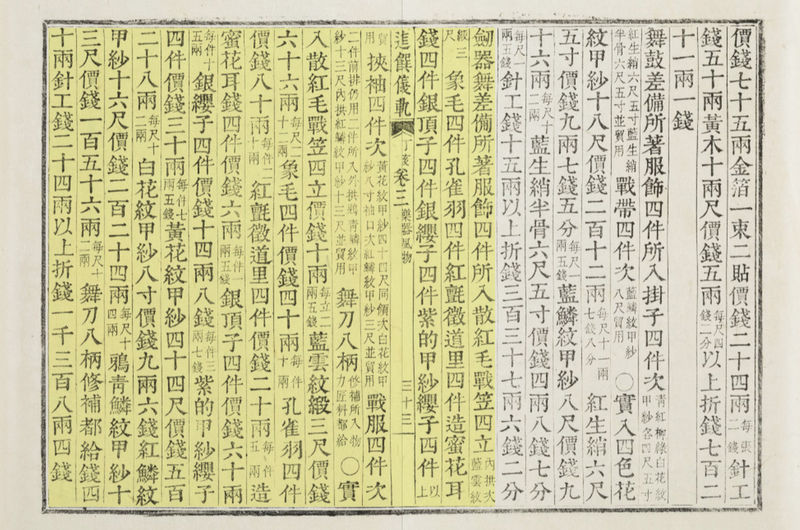 價錢七十五兩金箔一束二貼價錢二十四兩每張二錢針工
錢五十兩黃木十兩尺價錢五兩每尺四錢二分以上折錢七百二
十一兩一錢
舞鼓差備所著服飾四件所入掛子四件次青紅柳綠白花紋甲紗各四尺五寸
紅生綃六尺五寸藍生綃半骨六尺五寸並貿用戰帶四件次藍鱗紋甲紗八尺貿用○實入四色花
紋甲紗十八尺價錢二百十二兩每尺十一兩七錢八分紅生綃六尺
五寸價錢九兩七錢五分每尺一兩五錢藍鱗紋甲紗八尺價錢九
十六兩每尺十二兩藍生綃半骨六尺五寸價錢四兩八錢七分
每尺一兩五錢針工錢十五兩以上折錢三百三十七兩六錢二分
劒器舞差備所著服飾四件所入散紅毛戰笠四立內拱次藍雲紋
緞三尺象毛四件孔雀羽四件紅氈徵道里四件造蜜花耳
錢四件銀頂子四件銀纓子四件紫的甲紗纓子四件以上
進饌儀軌 丁亥 卷三 樂器風物 三十三
貿用挾袖四件次黃花紋甲紗四十四尺同領次白花紋甲紗八寸袖口次紅鱗紋甲紗三尺並貿用戰服四件次
二件前排仍用二件所入外拱鴉青鱗紋甲紗十三尺內拱紅鱗紋甲紗十三尺並貿用舞刀八柄修補所入物力匠科都給○實
入散紅毛戰笠四立價錢十兩每立二兩五錢藍雲紋緞三尺價錢
六十六兩每尺二十二兩象毛四件價錢四十兩每件十兩孔雀羽四件
價錢八十兩每件二十兩紅氈徵道里四件價錢二十兩每件五兩造
蜜花耳錢四件價錢六兩每件一兩五錢銀頂子四件價錢六十兩
每件十五兩銀纓子四件價錢十四兩八錢每件三兩七錢紫的甲紗纓子
四件價錢三十兩每件七兩五錢黃花紋甲紗四十四尺價錢五百
二十八兩每尺十二兩白花紋甲紗八寸價錢九兩六錢紅鱗紋
甲紗十六尺價錢二百二十四兩每尺十四兩鴉青鱗紋甲紗十
三尺價錢一百五十六兩每尺十二兩舞刀八柄修補都給錢四
十兩針工錢二十四兩以上折錢一千三百八兩四錢